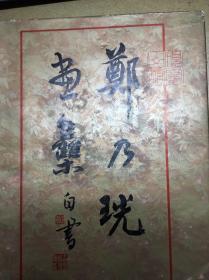 鄭乃珖
畫集
自書